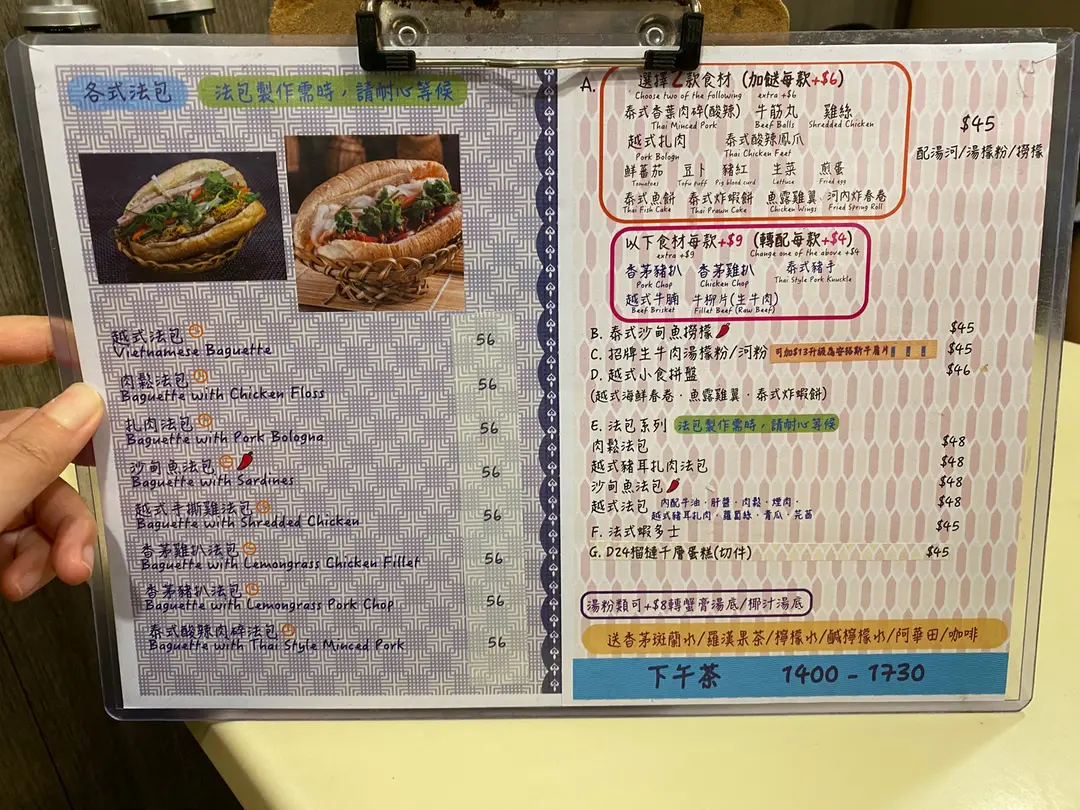 各式法包
法包製作需時，請耐心等候
越式法包 56
Vietnamese Baguette
肉鬆法包 56
Baguette with Chicken Floss
扎肉法包 56
Baguette with Pork Bologna
沙甸魚法包 56
Baguette with Sardines
越式手撕雞法包 56
Baguette with Shredded Chicken
香茅雞扒法包 56
Baguette with Lemongrass Chicken Fillet
香茅豬扒法包 56
Baguette with Lemongrass Pork Chop
泰式酸辣肉碎法包 56
Baguette with Thai Style Minced Pork
A. 選擇2款食材 (加餸每款+$6)
Choose two of the following extra +$6
泰式香葉肉碎(酸辣) 牛筋丸 雞絲
Thai Minced Pork Beef Balls Shredded Chicken
越式扎肉 泰式酸辣鳳爪
Pork Bologn Thai Chicken Feet
鮮蕃茄 豆卜 豬紅 生菜 煎蛋
Tomatoes Tofu puff Pig blood curd Lettuce Fried egg
泰式魚餅 泰式炸蝦餅 魚露雞翼 河內炸春卷
Thai Fish Cake Thai Prawn Cake Chicken Wings Fried Spring Roll
$45
配湯河/湯檬粉/撈檬
以下食材每款+$9 (轉配每款+$4)
extra +$9 Change one of the above +$4
香茅豬扒 香茅雞扒 泰式豬手
Pork Chop Chicken Chop Thai Style Pork Knuckle
越式牛腩 牛柳片(生牛肉)
Beef Brisket Fillet Beef (Raw Beef)
B. 泰式沙甸魚撈檬 $45
C. 招牌生牛肉湯檬粉/河粉 可加$13升級為安格斯牛肩片 $45
D. 越式小食拼盤 $46
(越式海鮮春卷．魚露雞翼．泰式炸蝦餅)
E. 法包系列 法包製作需時，請耐心等候
肉鬆法包 $48
越式豬耳扎肉法包 $48
沙甸魚法包 $48
越式法包 內配牛油．肝醬．肉鬆．煙肉． $48
越式豬耳扎肉．蘿蔔絲．青瓜．芫茜
F. 法式蝦多士 $45
G. D24榴槤千層蛋糕(切件) $45
湯粉類可+$8轉蟹膏湯底/椰汁湯底
送香茅斑蘭水/羅漢果茶/檸檬水/鹹檸檬水/阿華田/咖啡
下午茶 1400 - 1730